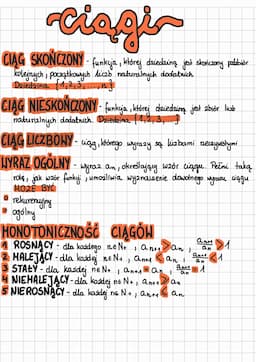 ~Ciągi~
CIĄG SKOŃCZONY - funkcja, której dziedziną jest skończony podzbiór
kolejnych, początkowych liczb naturalnych dodatnich.
Dziedzina {1,2,3, ... n}
CIĄG NIESKOŃCZONY - funkcja, której dziedziną jest zbiór liczb
naturalnych dodatnich. Dziedzina {1,2,3, ...}
CIĄG LICZBOWY - ciąg, którego wyrazy są liczbami rzeczywistymi
WYRAZ OGÓLNY - wyraz an, określający wzór ciągu. Pełni taką
rolę, jak wzór funkcji, umożliwia wyznaczenie dowolnego wyrazu ciągu
MOŻE BYĆ
rekurencyjny
ogólny
MONOTONICZNOŚĆ CIĄGÓW
1 ROSNĄCY - dla każdego n∈N+, an+1 > an, an+1/an > 1
2 MALEJĄCY - dla każdej n∈N+, an+1 < an, an+1/an < 1
3 STAŁY - dla każdej n∈N+, an+1 = an, an+1/an = 1
4 NIEMALEJĄCY - dla każdej n∈N+, an+1 ≥ an
5 NIEROSNĄCY - dla każdej n∈N+, an+1 ≤ an